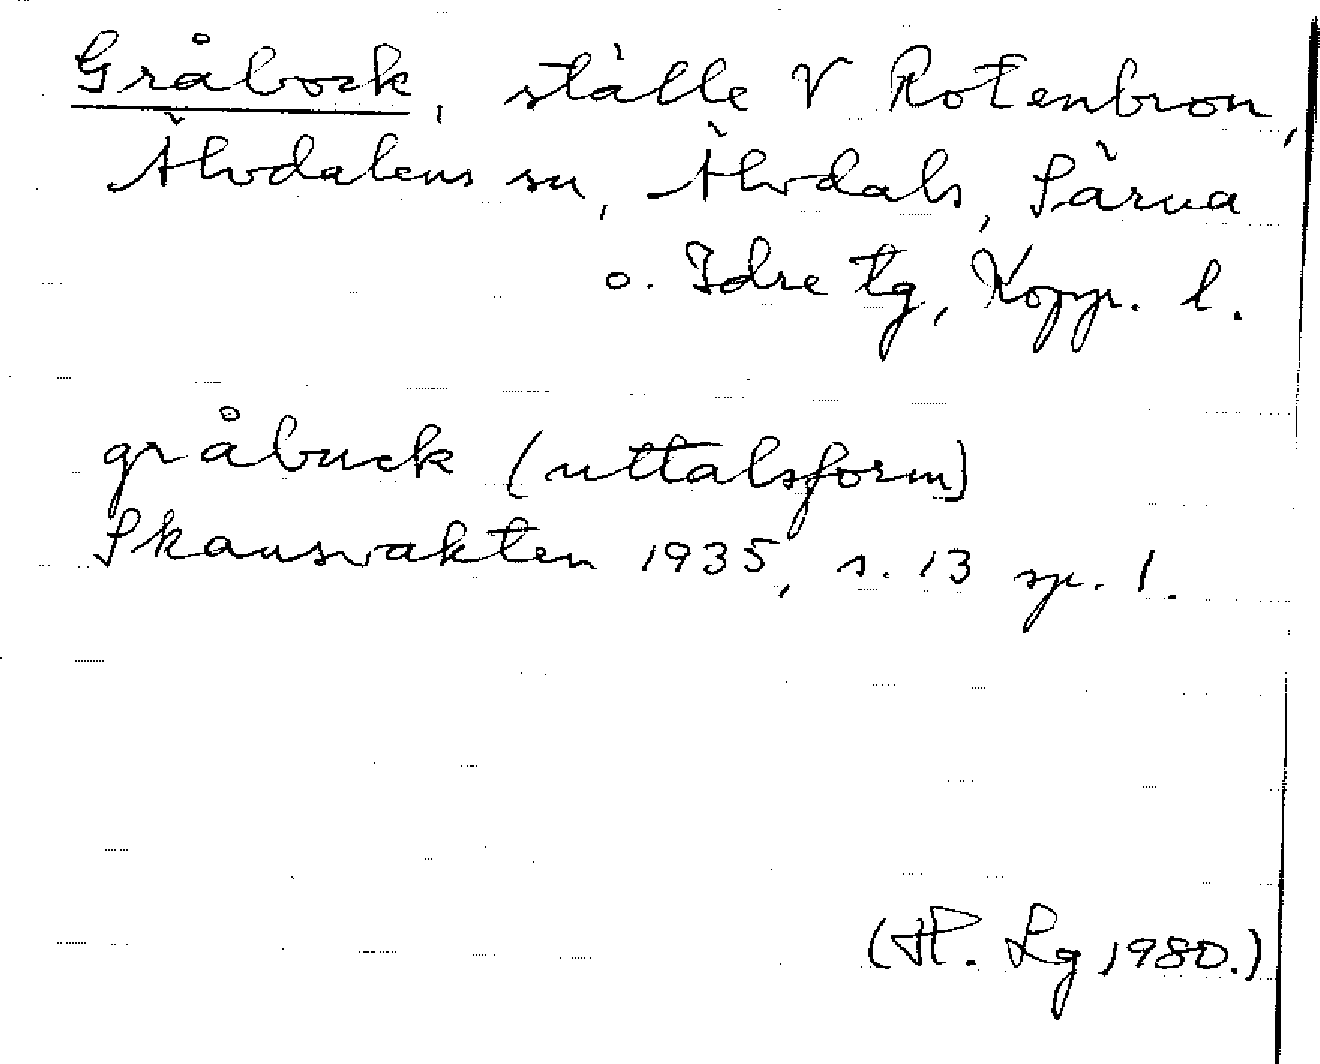 Gråbock, ställe V Rotenbron,
Älvdalens sn, Älvdals, Särna
o. Idre tg, Kopp. l.
gråbuck (uttalsform)
Skansvakten 1935, s. 13 sp. 1.
(H. Lg 1980.)